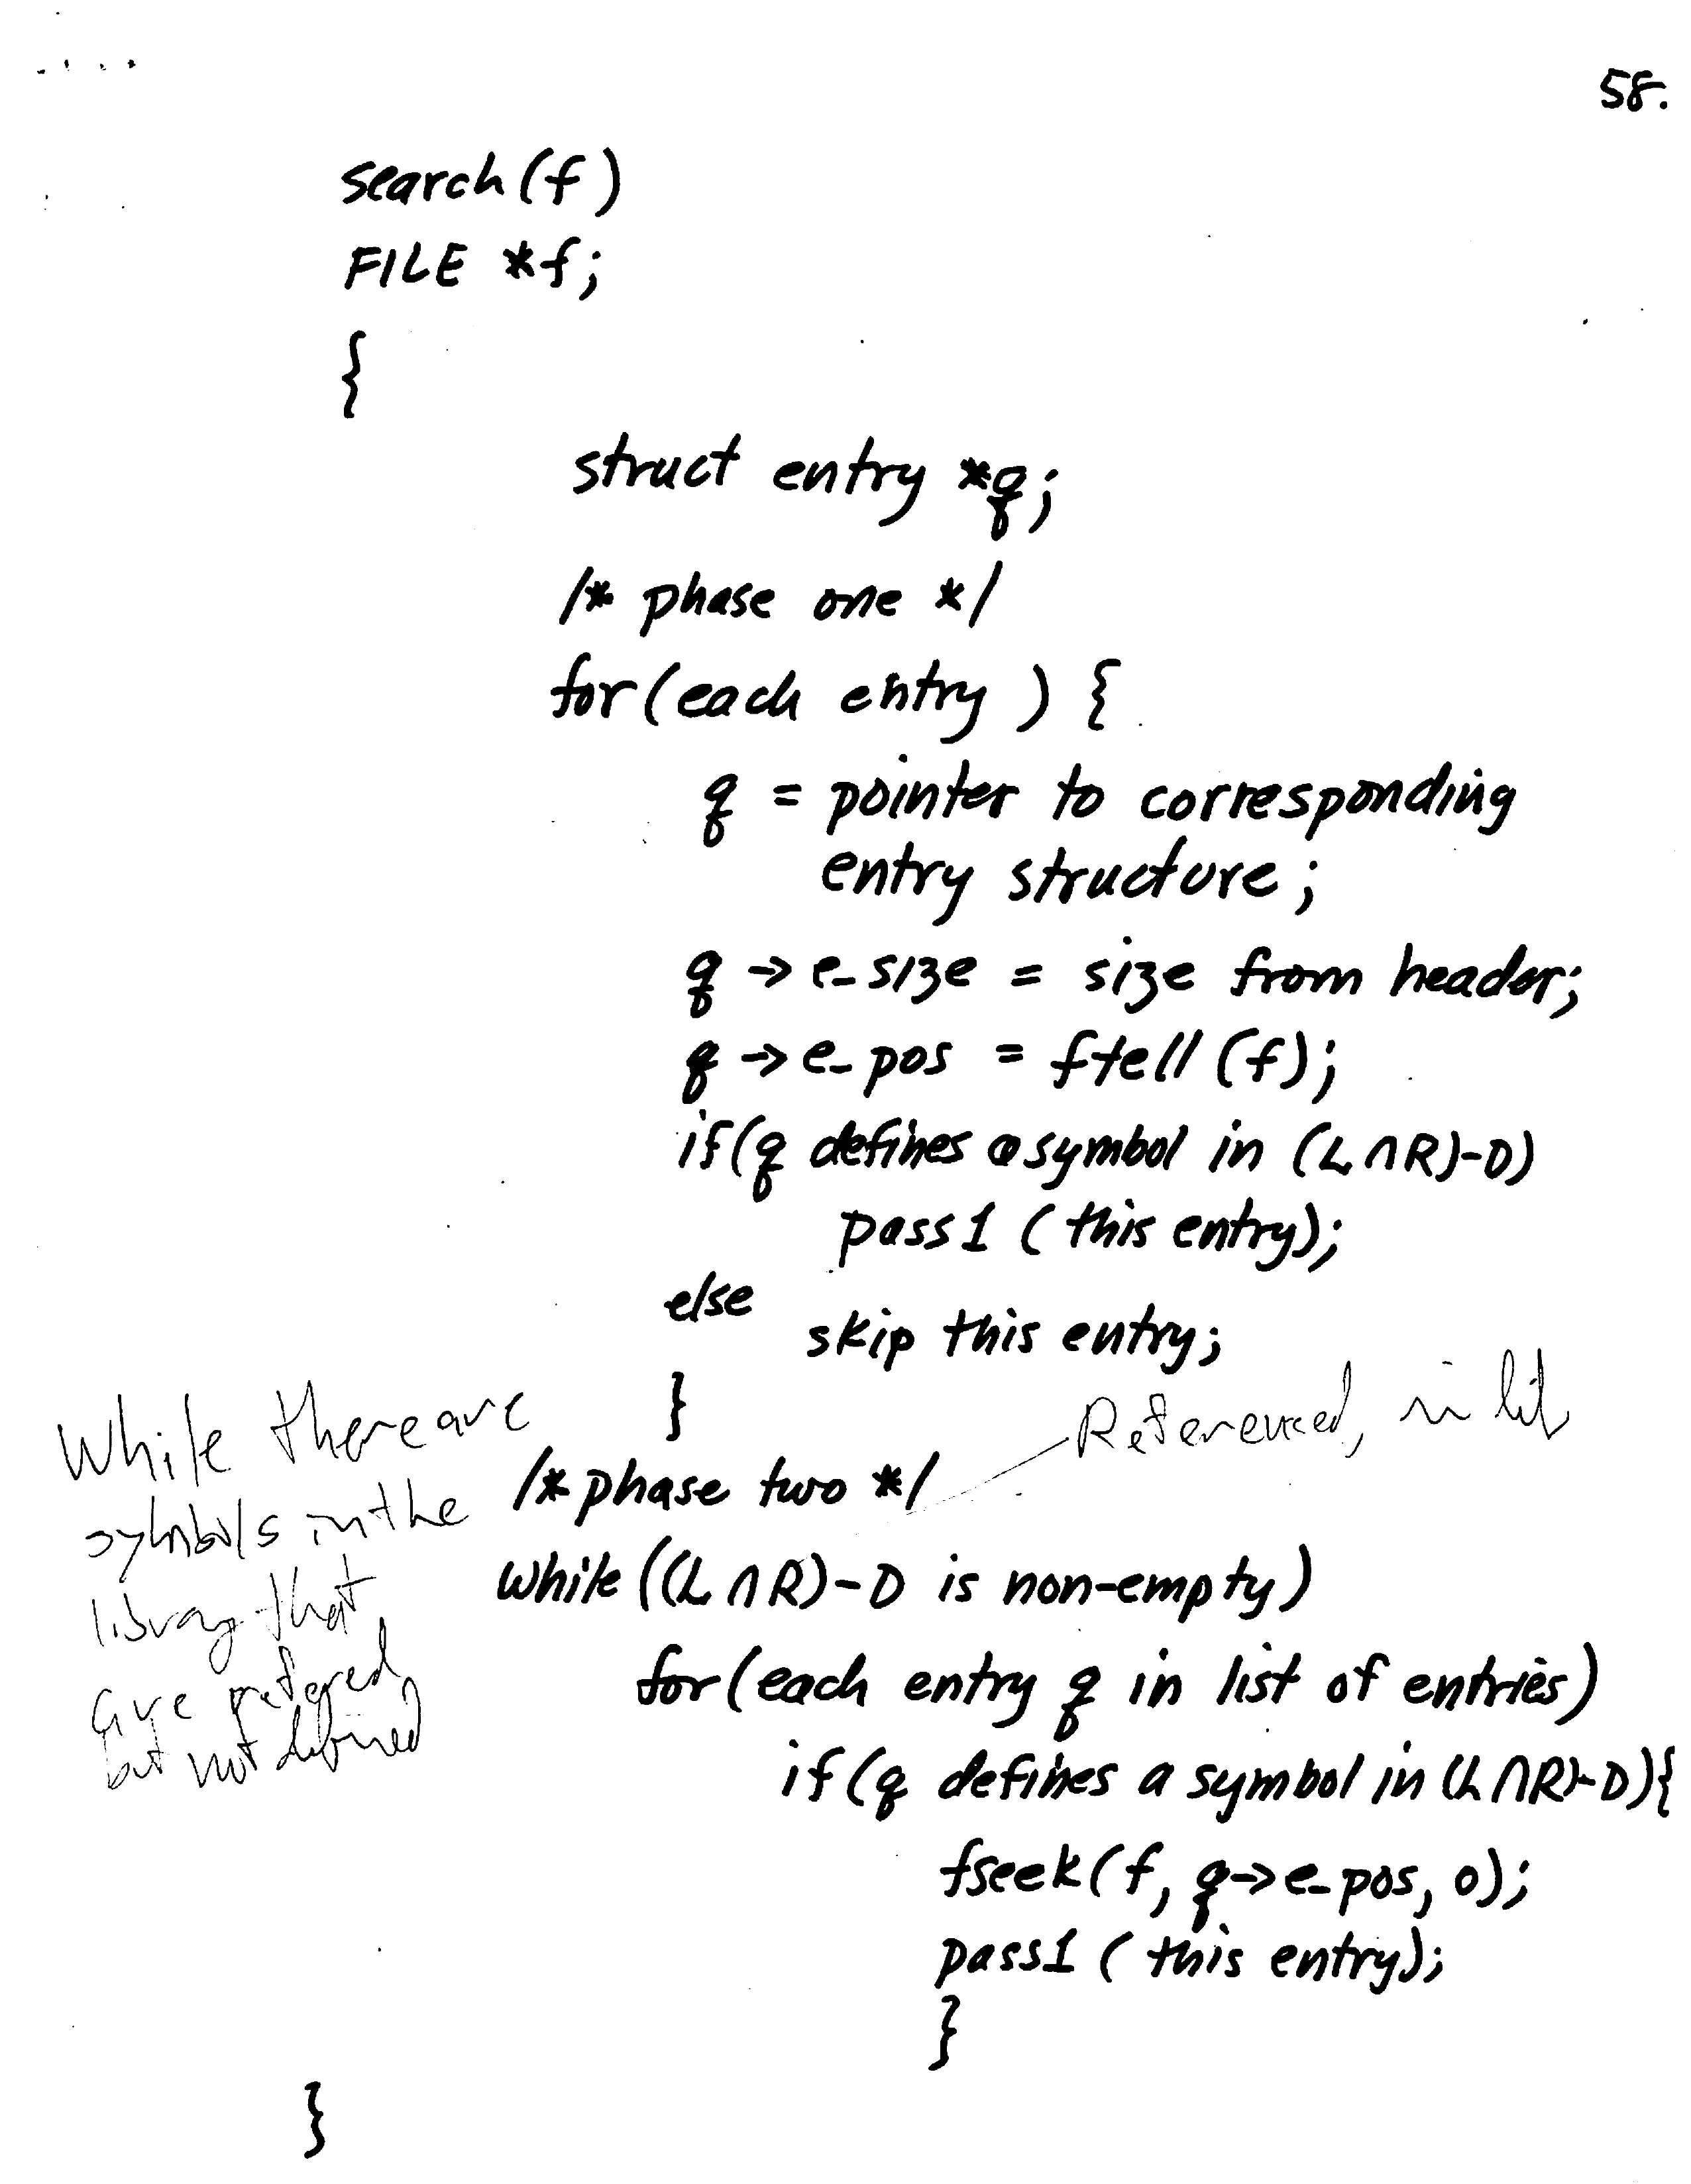 58.
search(f)
FILE *f;
{
struct entry *q;
/* phase one */
for(each entry ) {
q = pointer to corresponding
entry structure;
q -> e_size = size from header;
q -> e_pos = ftell(f);
if(q defines a symbol in (L ∩ R)-D)
pass1 ( this entry);
else
skip this entry;
}
Referenced, in lib
/* phase two */
while((L ∩ R)-D is non-empty)
for(each entry q in list of entries)
if(q defines a symbol in (L ∩ R)-D){
fseek(f, q->e_pos, 0);
pass1 ( this entry);
}
}
While there are
symbols in the
library that
are refered
but not defined